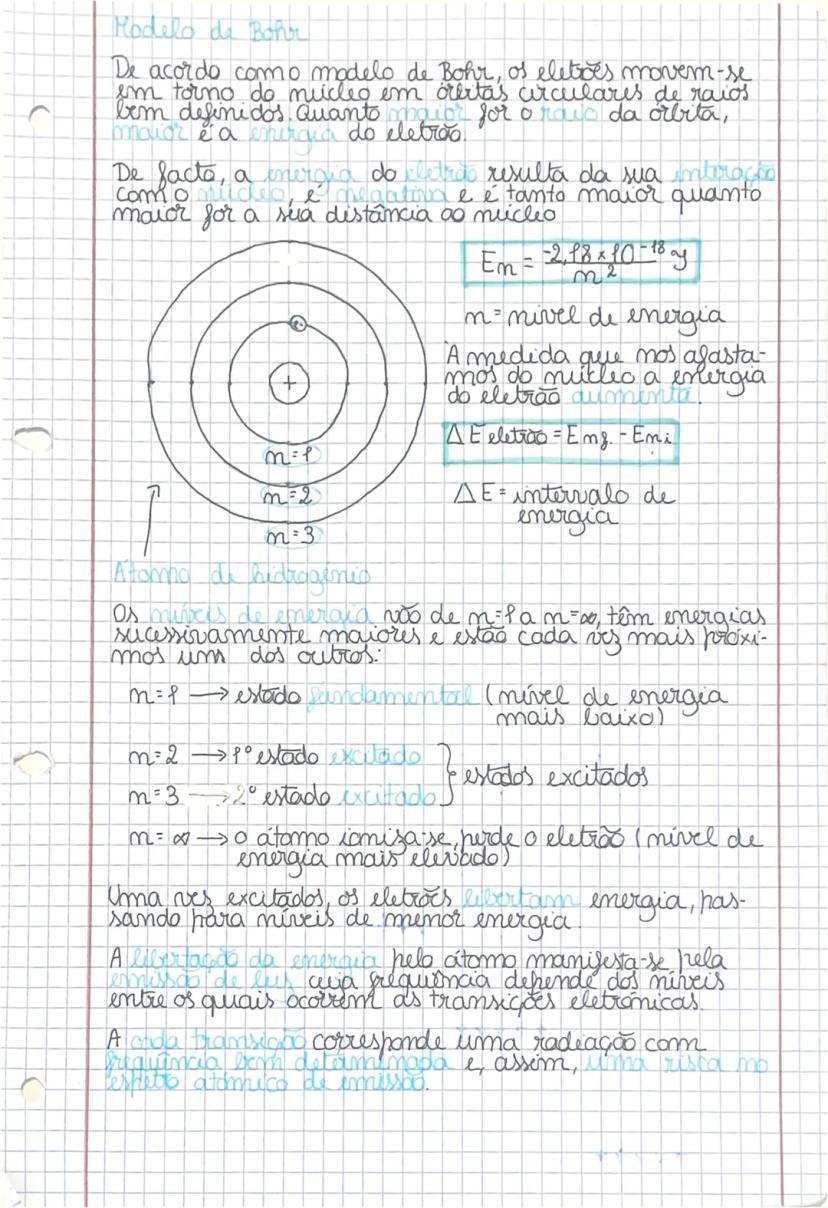 Modelo de Bohr
De acordo com o modelo de Bohr, os eletrões movem-se
em torno do núcleo em órbitas circulares de raios
bem definidos. Quanto maior for o raio da órbita,
maior é a energia do eletrão.
De facto, a energia do eletrão resulta da sua interação
com o núcleo, é negativa e é tanto maior quanto
maior for a sua distância ao núcleo
En = -2,18 × 10⁻¹⁸ J / n²
n = nível de energia
À medida que nos afasta-
mos do núcleo a energia
do eletrão aumenta.
e
+
n=1
n=2
n=3
Δ E eletrão = Enf. - Eni
Δ E = intervalo de
energia
Átomo de hidrogénio
Os níveis de energia vão de n=1 a n=∞, têm energias
sucessivamente maiores e estão cada vez mais próxi-
mos uns dos outros:
n=1 → estado fundamental (nível de energia
mais baixo)
n=2 → 1º estado excitado
n=3 → 2º estado excitado
} estados excitados
n=∞ → o átomo ioniza-se, perde o eletrão (nível de
energia mais elevado)
Uma vez excitados, os eletrões libertam energia, pas-
sando para níveis de menor energia.
A libertação da energia pelo átomo manifesta-se pela
emissão de luz cuja frequência depende dos níveis
entre os quais ocorrem as transições eletrónicas.
A cada transição corresponde uma radiação com
frequência bem determinada e, assim, uma risca no
espetro atómico de emissão.